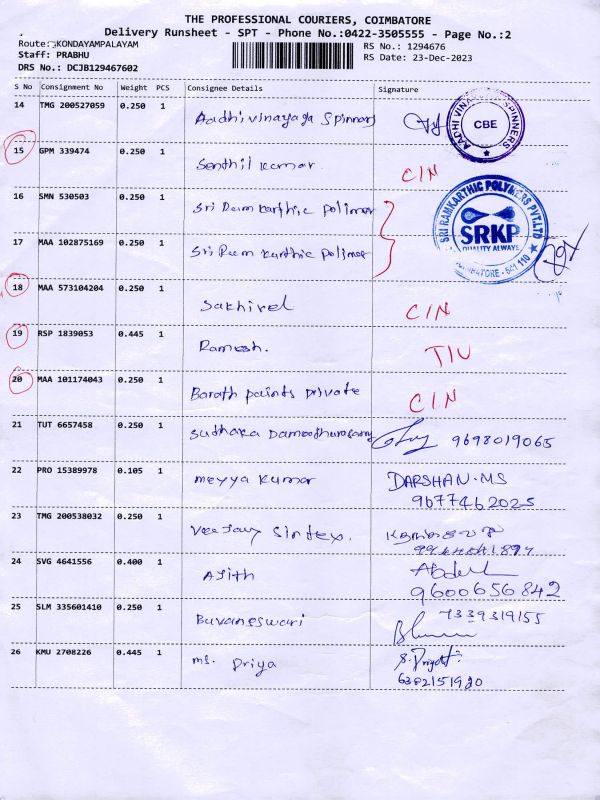 THE PROFESSIONAL COURIERS, COIMBATORE
Delivery Runsheet - SPT - Phone No.:0422-3505555 - Page No.:2
Route: KONDAYAMPALAYAM
RS No.: 1294676
Staff: PRABHU
RS Date: 23-Dec-2023
DRS No.: DCJB129467602
S No Consignment No Weight PCS Consignee Details Signature
14 TMG 200527059 0.250 1 Aadhi vinayaga spinners
AADHI VINAYAGA SPINNERS CBE
15 GPM 339474 0.250 1 Senthil kumar. CIN
16 SMN 530503 0.250 1 Sri Ram karthic polimer
17 MAA 102875169 0.250 1 Sri Ram karthic polimer
SRI RAMKARTHIC POLYMERS PVT.LTD
SRKP
QUALITY ALWAYS
COIMBATORE - 641 110
18 MAA 573104204 0.250 1 Sakhivel CIN
19 RSP 1839053 0.445 1 Ramesh. TIU
20 MAA 101174043 0.250 1 Barath paints private CIN
21 TUT 6657458 0.250 1 Sudhaka 9698019065
22 PRO 15389978 0.105 1 meyya kumar DARSHAN.MS
9677462025
23 TMG 200538032 0.250 1 Veejay Sintex.
24 SVG 4641556 0.400 1 Ajith Abdul
9600656842
25 SLM 335601410 0.250 1 Buvaneswari 7339319155
26 KMU 2708226 0.445 1 ms. Priya S. Priya
6382151920